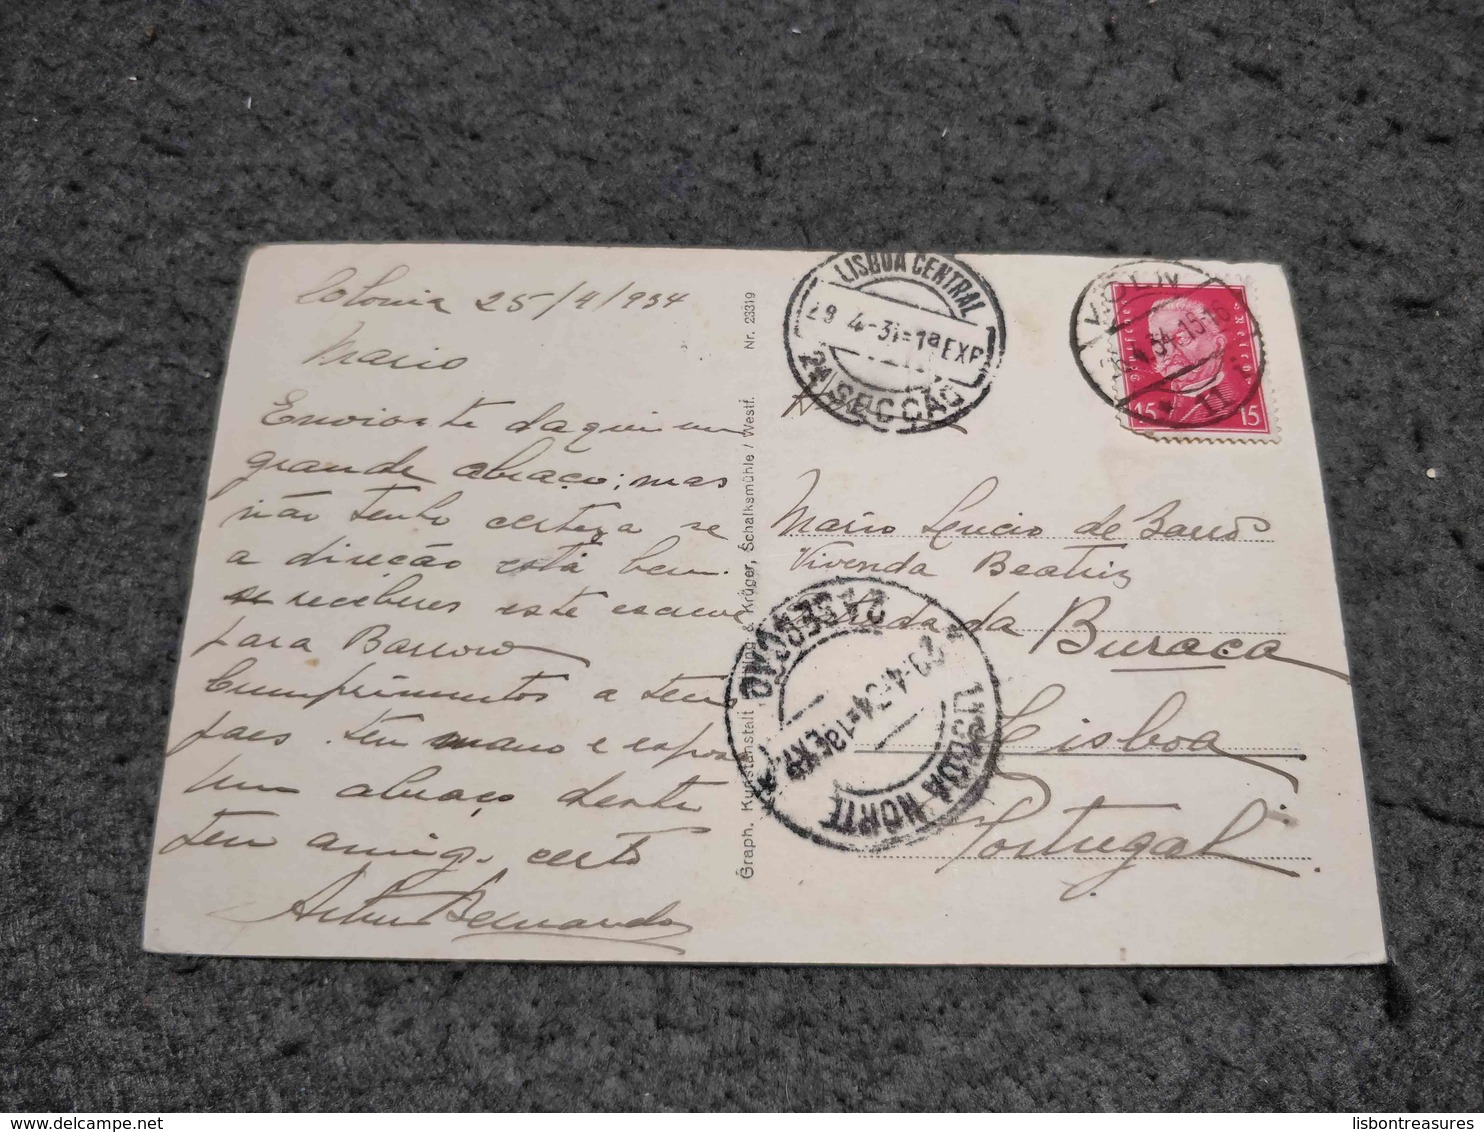 Colonia 25/4/934
Mario
Envio-te daqui um
grande abraço; mas
não tenho certeza se
a direcão está bem.
se receberes este escreve
para Barroso
Cumprimentos a teus
paes. teu mano e
um abraço deste
teu amigo certo
Artur Bernardo
Nr. 23319
Graph. Kunstanstalt & Krüger, Schalksmühle / Westf.
LISBOA CENTRAL
28 4-31=1ªEXP
2ª SECCÃO
KÖLN
15 15
Mario Lucio de Barros
Vivenda Beatriz
Estrada da Buraca
Lisboa
Portugal
2ª SECÇÃO
29.4.34=13EXP
LISBOA NORTE
delcampe.net
lisbontreasures